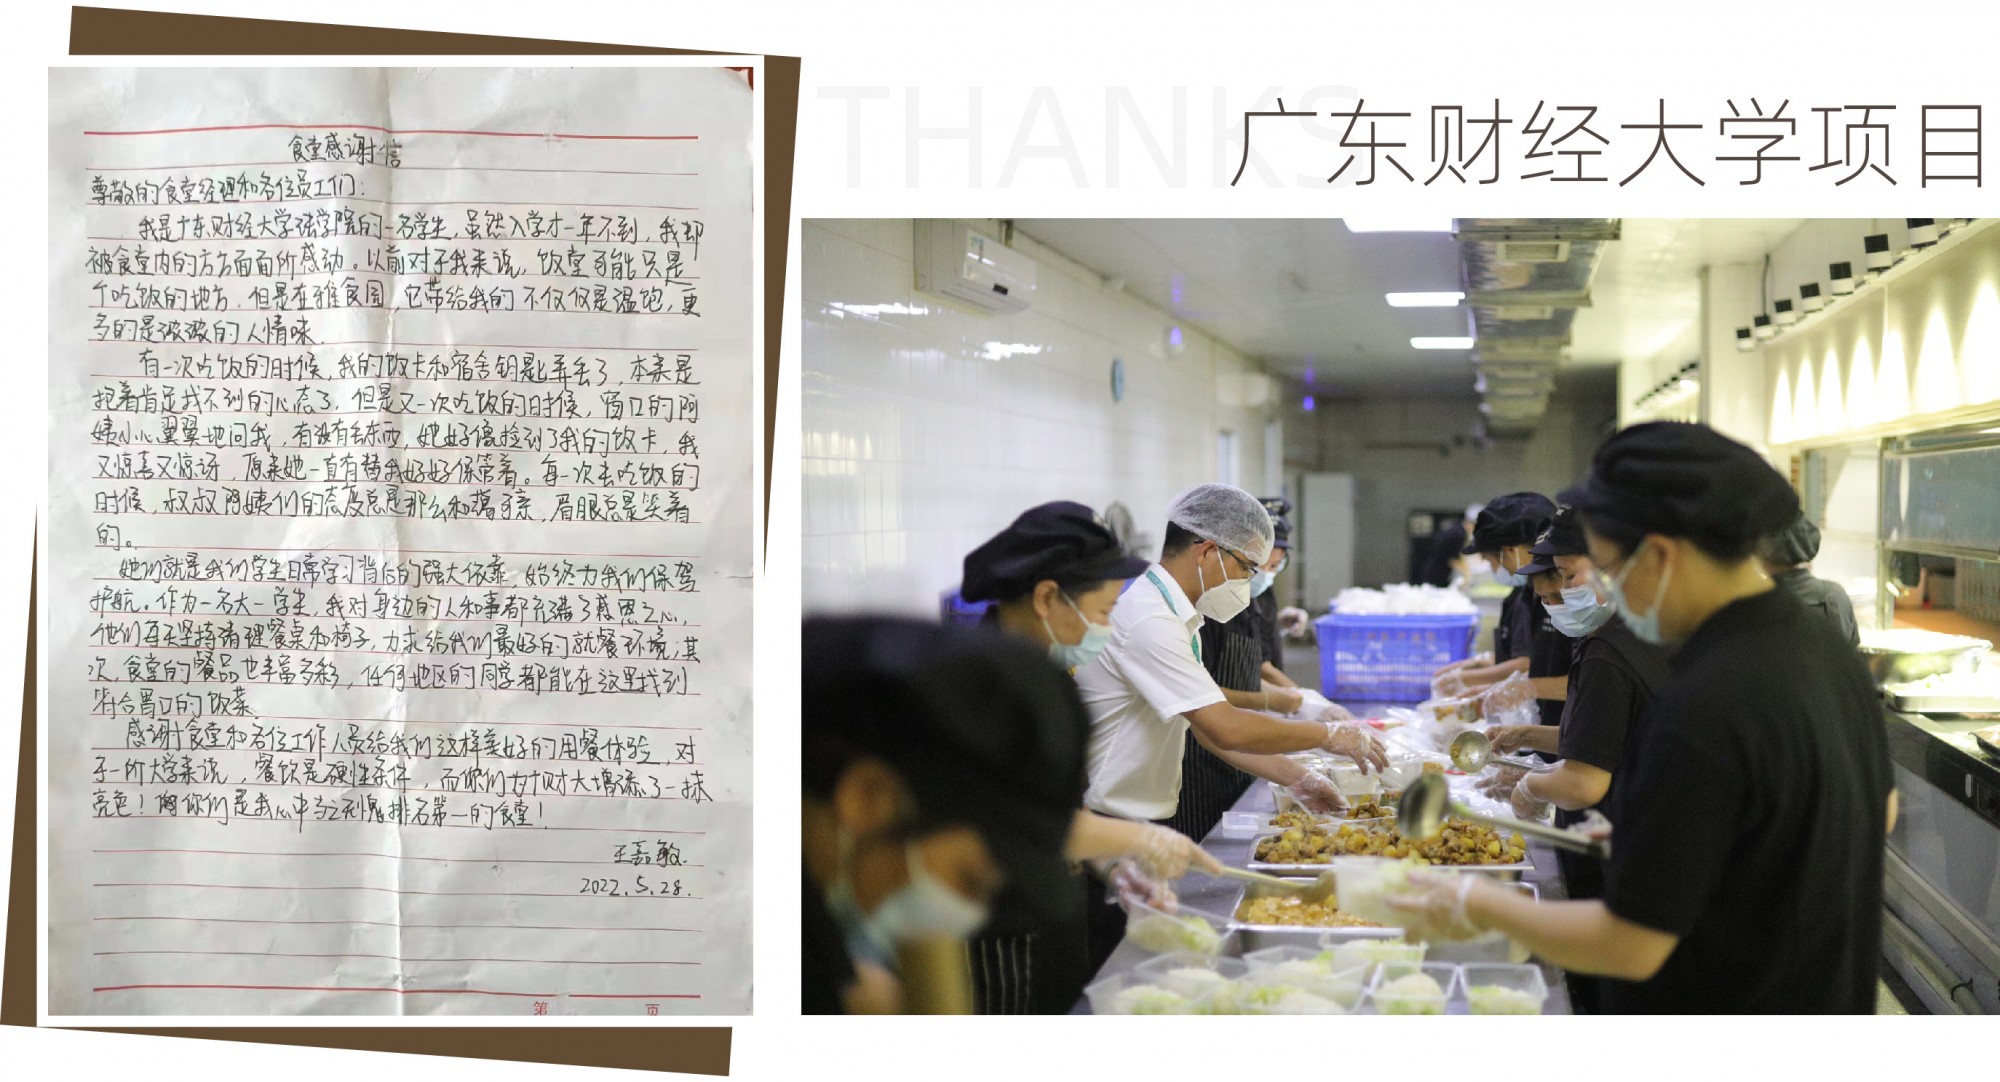 THANKS
广东财经大学项目
食堂感谢信
尊敬的食堂经理和各位员工们：
我是广东财经大学法学院的一名学生，虽然入学才一年不到，我却
被食堂内的方方面面所感动。以前对于我来说，饭堂可能只是
个吃饭的地方，但是在雅食园，它带给我的不仅仅是温饱，更
多的是浓浓的人情味.
有一次吃饭的时候，我的饭卡和宿舍钥匙弄丢了，本来是
抱着肯定找不到的心态了，但是又一次吃饭的时候，窗口的阿
姨小心翼翼地问我，有没有丢东西，她好像捡到了我的饭卡，我
又惊喜又惊讶，原来她一直有替我好好保管着。每一次去吃饭的
时候，叔叔阿姨们的态度总是那么和蔼可亲，眉眼总是笑着
的。
她们就是我们学生日常学习背后的强大依靠，始终为我们保驾
护航。作为一名大一学生，我对身边的人和事都充满了感恩之心，
他们每天坚持清理餐桌和椅子，力求给我们最好的就餐环境；其
次，食堂的餐品也丰富多彩，任何地区的同学都能在这里找到
符合胃口的饭菜
感谢食堂和各位工作人员给我们这样美好的用餐体验，对
于一所大学来说，餐饮是硬性条件，而你们为广财大增添了一抹
亮色！你们是我心中当之无愧排名第一的食堂！
王嘉敏.
2022.5.28.
第 页